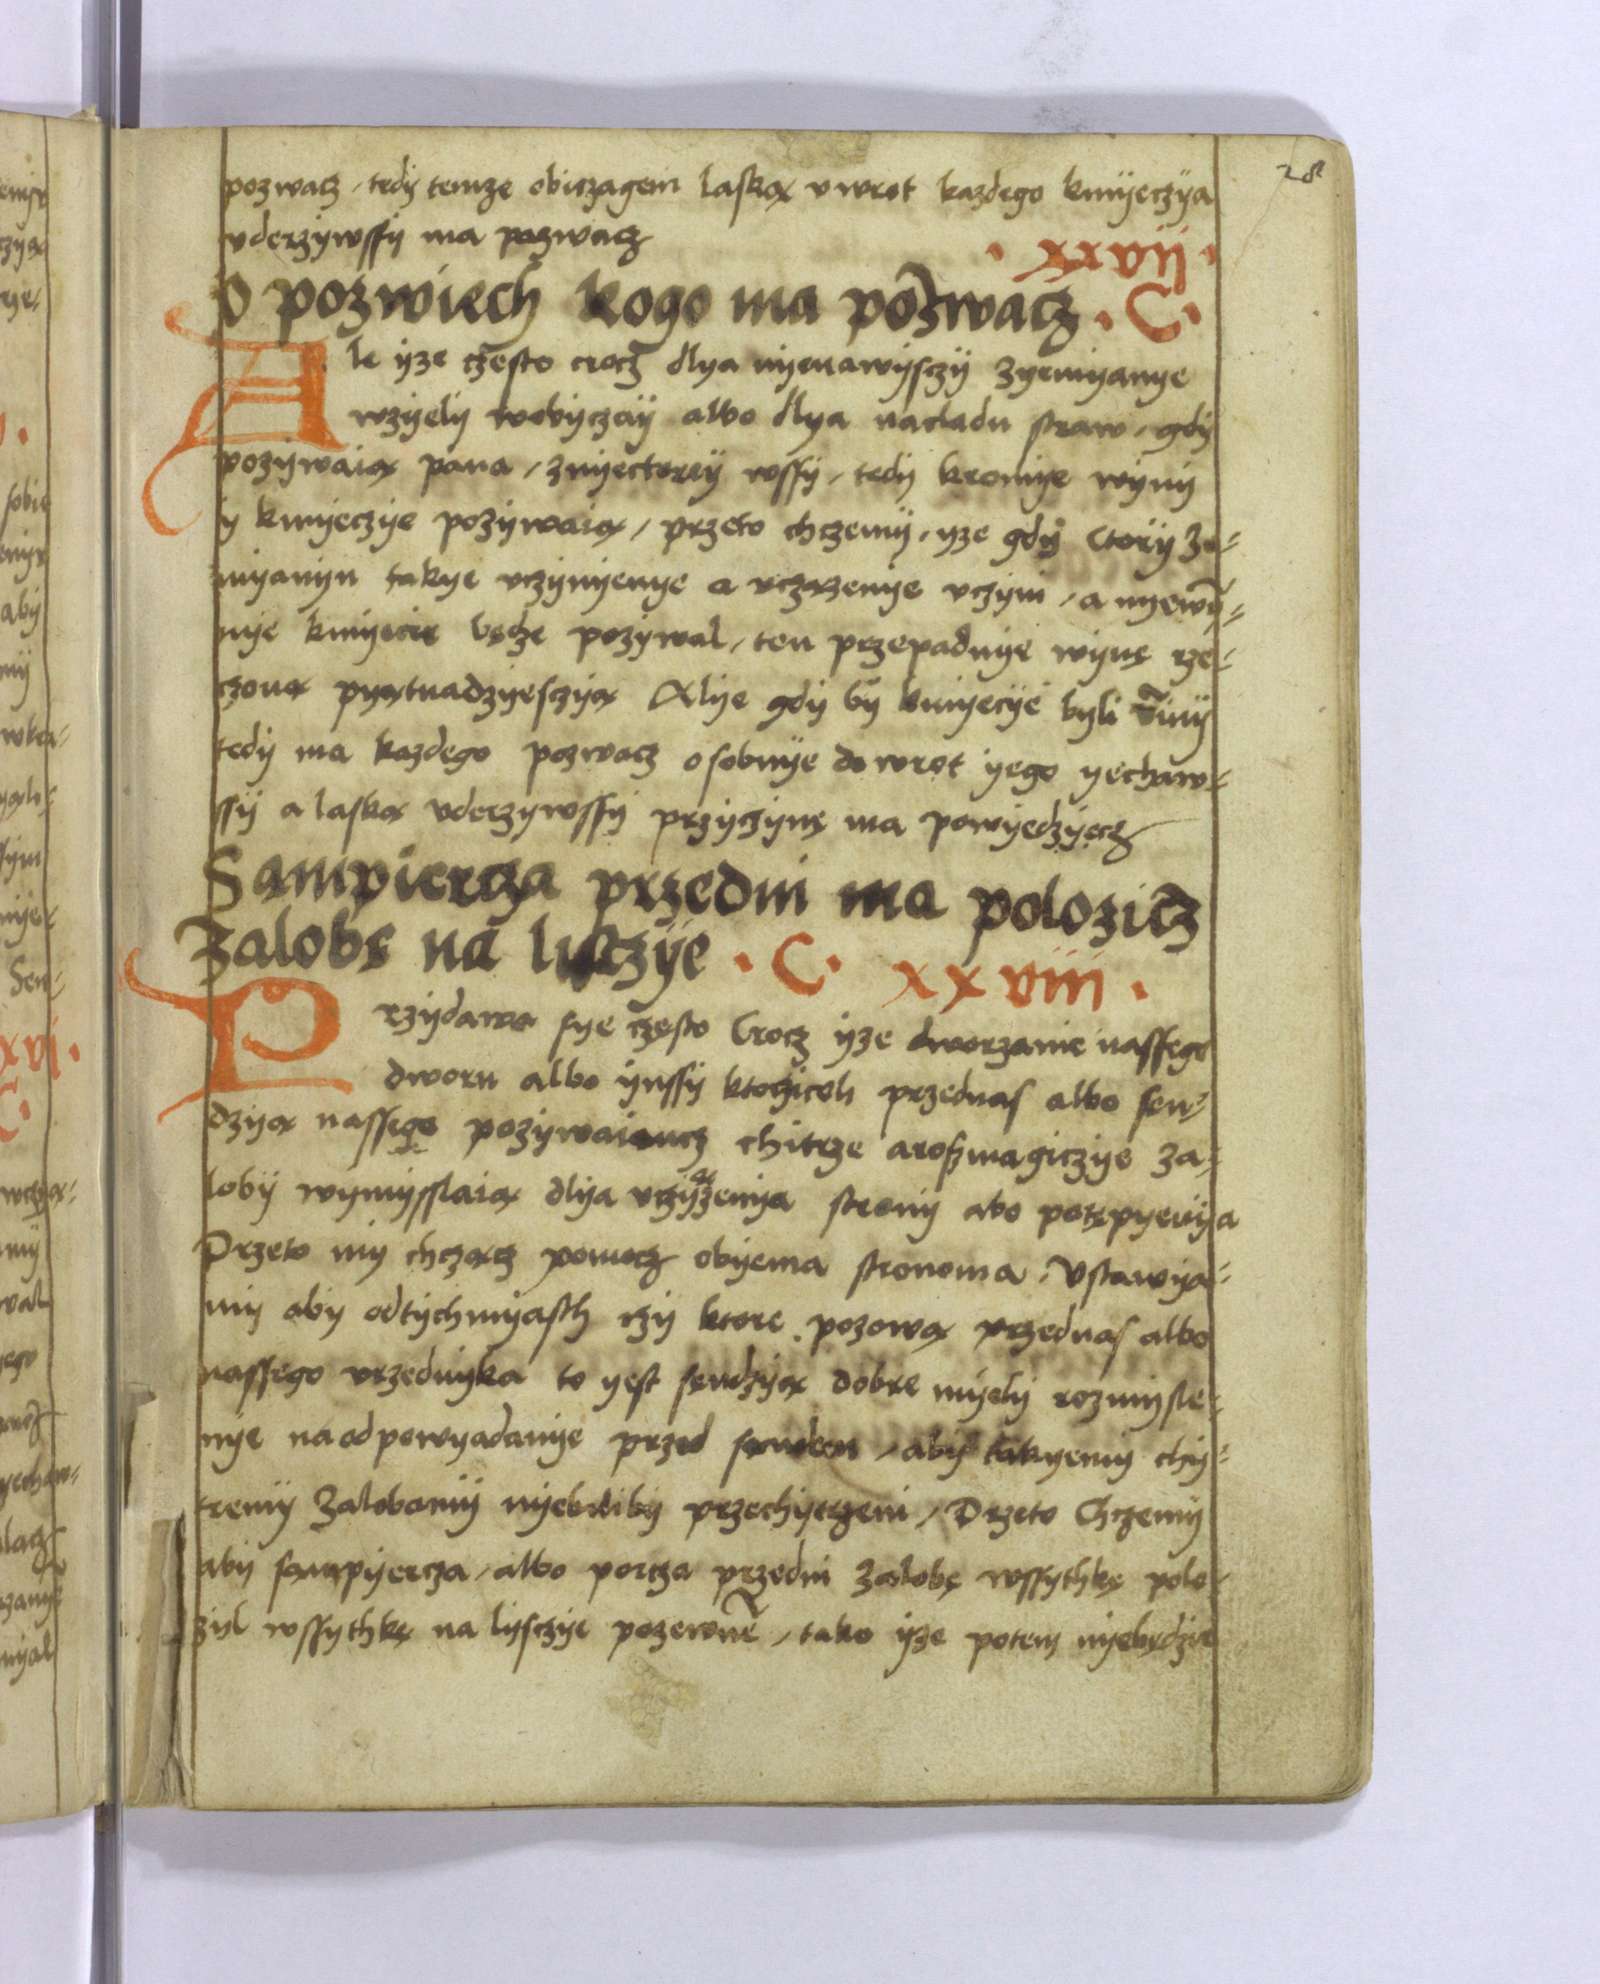 28
pozwacz, tedy temze obiczagem laską v wrot każdego kmyeczya
vderzywssy ma pozwacz
· xxvij ·
O pozwiech kogo ma pozwacz · C ·
Ale yze czesto crocz dlya nyenawysczy zyemyanye
wzyely wobyczay albo dlya nacladu straw, gdy
pozywaią pana, znyectorey wssy, tedy kromye wyny
y kmyeczye pozywaią, przeto chczemy, yze gdy ctory ze-
myanyn takye vczynyenye a vczązenye vczyni, a nyewy-
nye kmyecie będze pozywal, ten przepadnye wynę rze-
czoną pyątnadzyesczyą Alye gdy by kmyecye byli viny
tedy ma kazdego pozwacz osobnye do wrot yego yechaw-
ssy a laską vderzywssy przyczynę ma powyedzyecz
Sampiercza przedni ma polozicz
Zalobę na lisczye · C · xxviii ·
Przydawa sye często Crocz yze dworzanie nassego
dworu albo ynssy ktorzicoli przednas albo sen-
dzyą nassego pozywaiancz chitrze arosmagiczye za-
loby wymysslaią dlya vczyązenya strony abo potępyenya
Przeto my chcząncz pomocz obyema stronoma, Vstawya-
my aby odtychmyasth czy ktore pozową przednas albo
nassego vrzednyka to yest sendzyą dobre myely rozmysle-
nye na odpowyadanye przed sendem, aby takyemy chy-
tremy zalobamy nyebyliby przechytrzeni, Przeto Chczemy
aby sampyercza, albo porcza przedni zalobę wssythkę polo-
zyl wssythkę na lysczye pozewne, tako yze potem nyebędzie